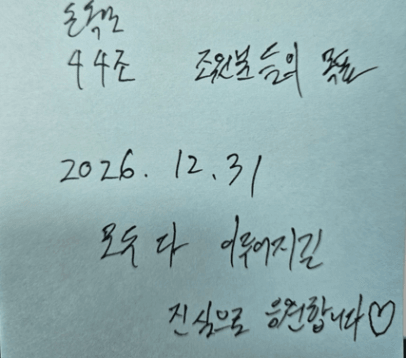 44조 조원분들의 목표
2026. 12. 31
모두 다 이루어지길
진심으로 응원합니다♡